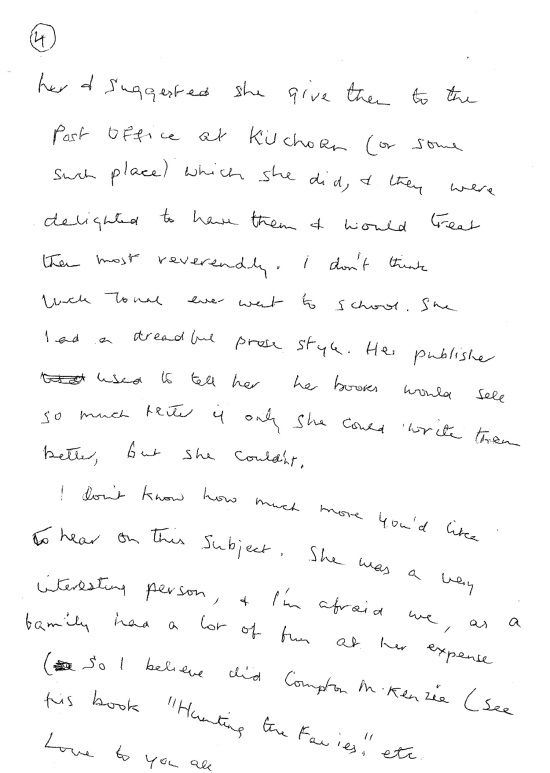 4
her & suggested she give them to the
Post Office at Kilchoan (or some
such place) which she did, & they were
delighted to have them & would treat
them most reverendly. I don't think
ever went to school. She
had a dreadful prose style. Her publisher
used to tell her her books would sell
so much better if only she could write them
better, but she couldn't.
I don't know how much more you'd like
to hear on this subject. She was a very
interesting person, & I'm afraid we, as a
family had a lot of fun at her expense
(So I believe did Compton McKenzie (See
his book "Hunting the Fairies" etc.
Love to you all